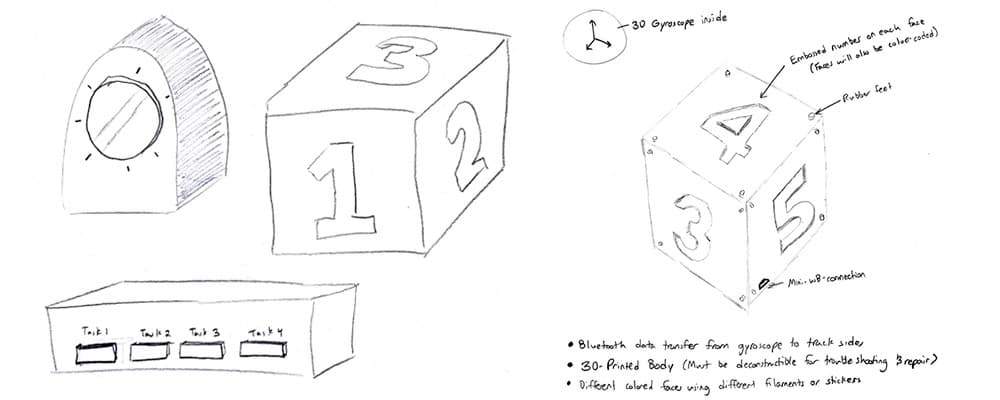 3
1
2
Task 1
Task 2
Task 3
Task 4
3D Gyroscope inside
Embossed number on each face
(Faces will also be color-coded)
Rubber feet
4
3
5
connection
• Bluetooth data transfer from gyroscope to track sides
• 3D-Printed Body (Must be deconstructible for trouble shooting & repair)
• Different colored faces using different filaments or stickers